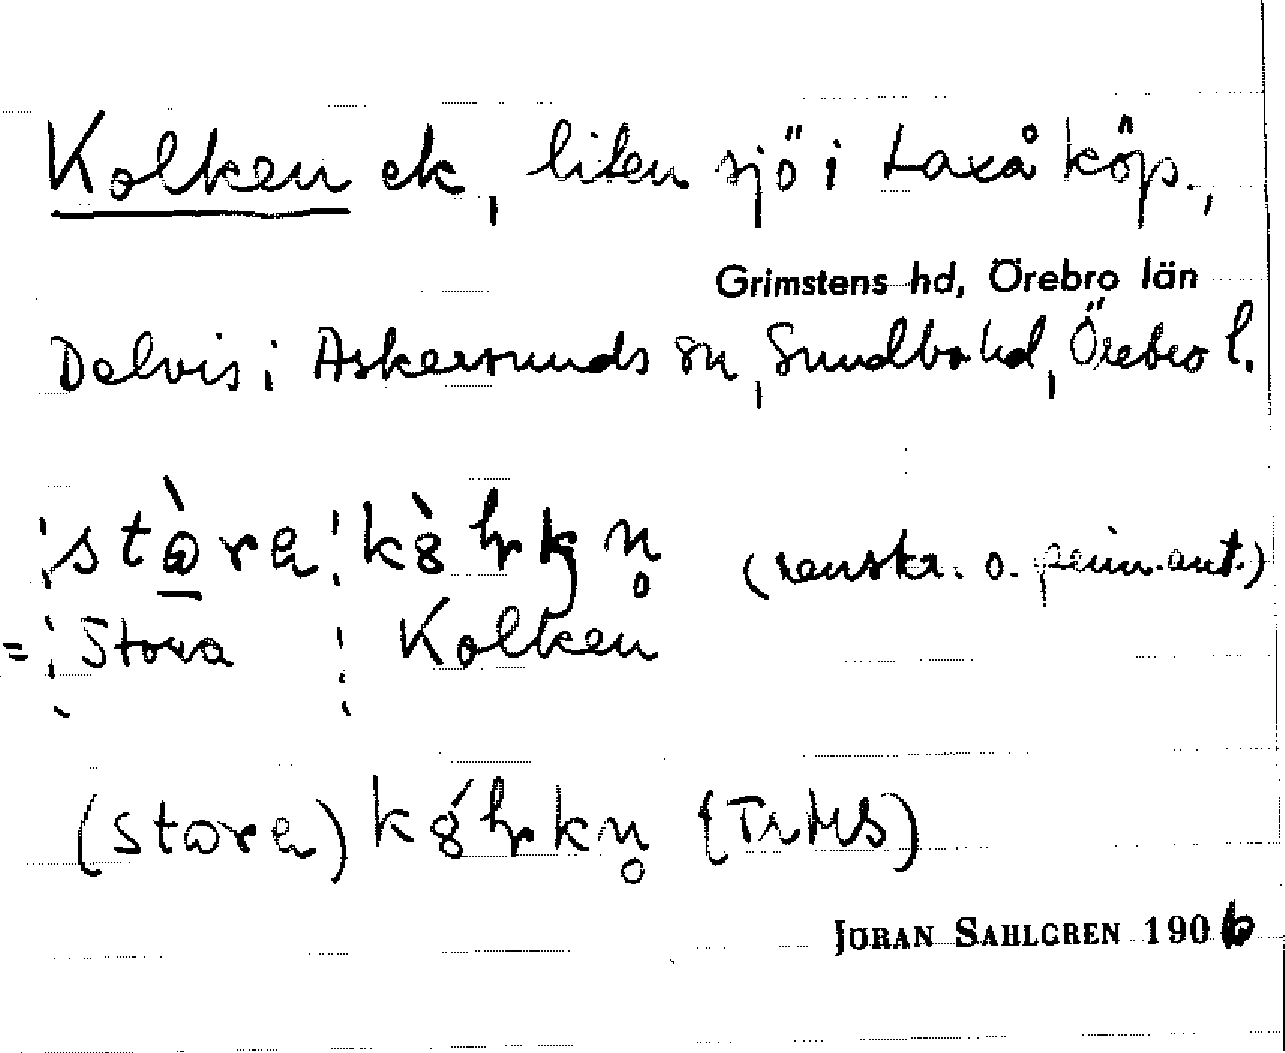 Kolken ek, liten sjö i Laxå köp.,
Grimstens hd, Örebro län
Delvis i Askersunds sn, Sundbo hd, Örebro l.
(renskr. o. prim.ant.)
= Stora Kolken
(stora) (TrHS)
JÖRAN SAHLGREN 1906